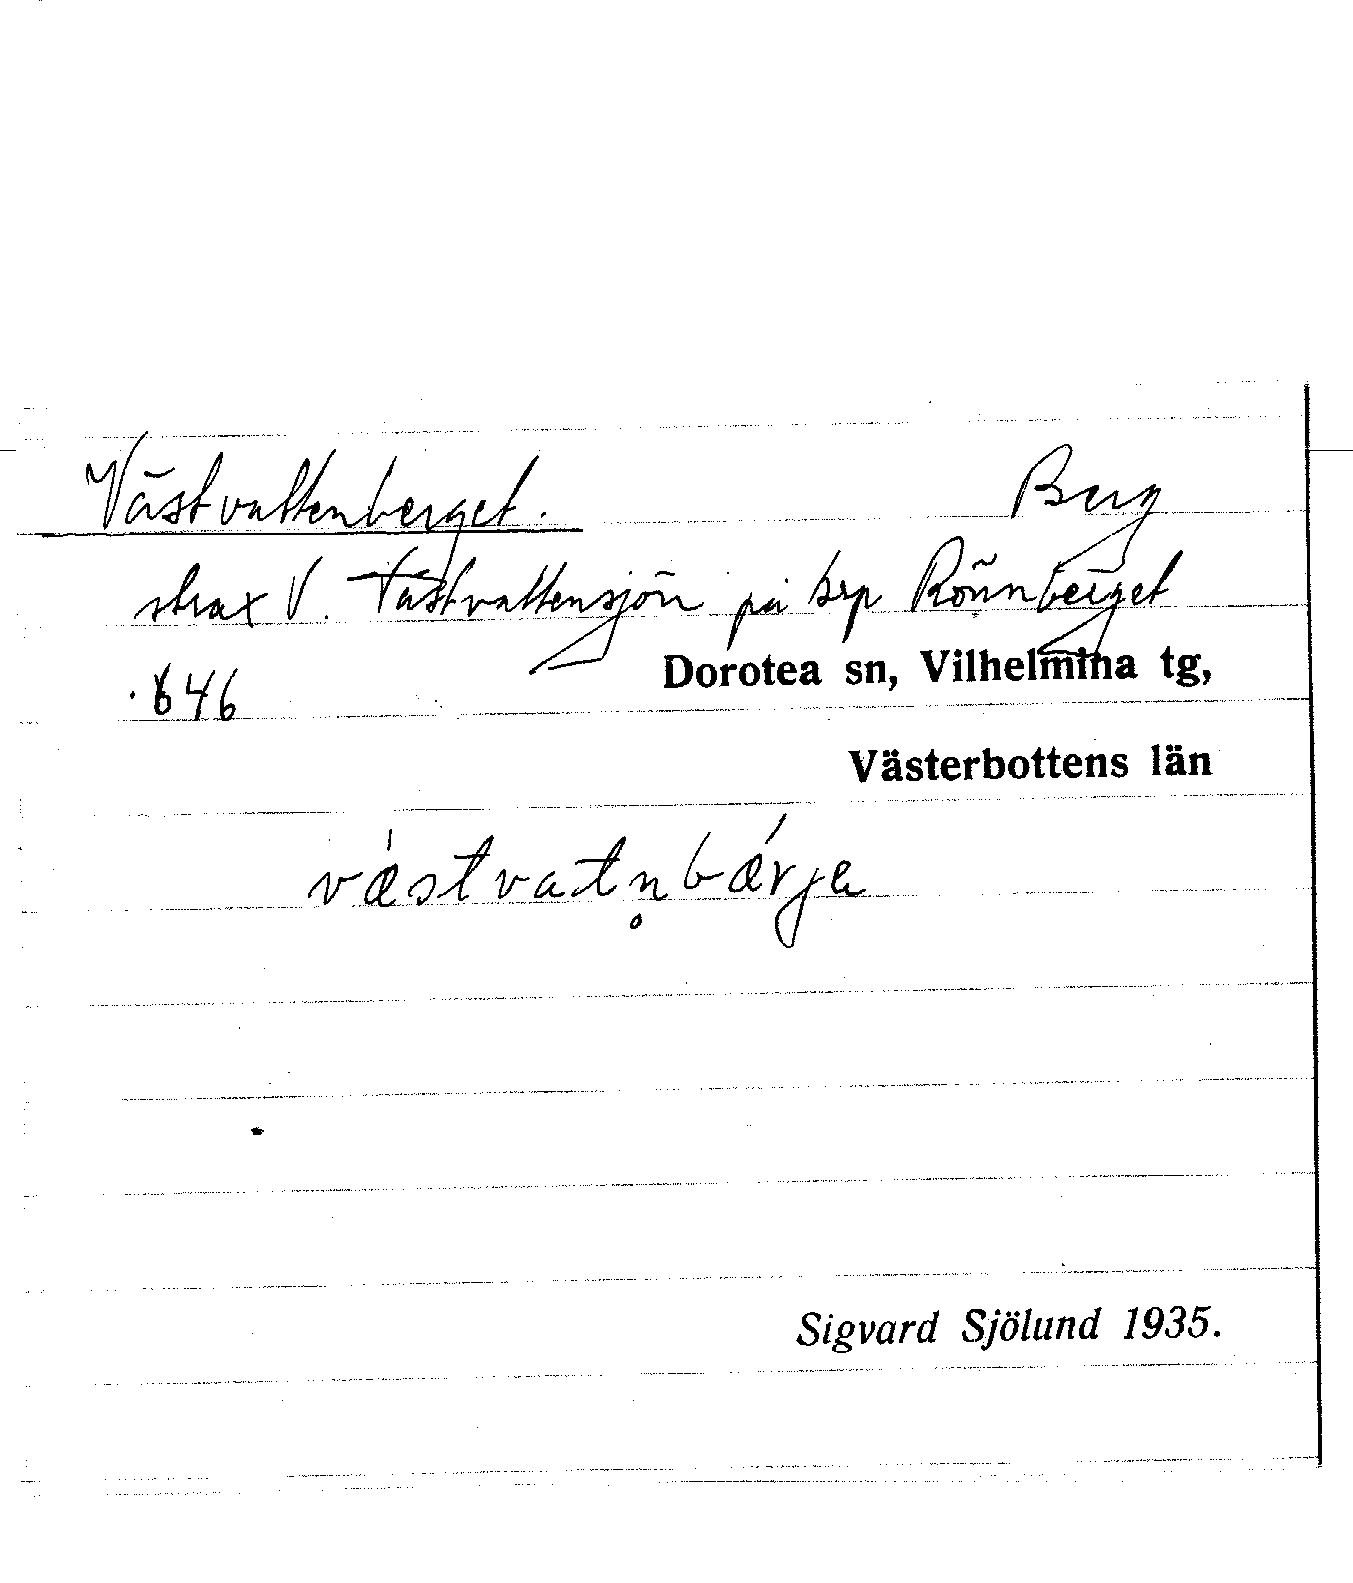 Västvattenberget. Berg
strax V. Västvattensjön på krp Rönnberget
Dorotea sn, Vilhelmina tg,
.646
Västerbottens län
væ̀stvatn̥bærja
Sigvard Sjölund 1935.